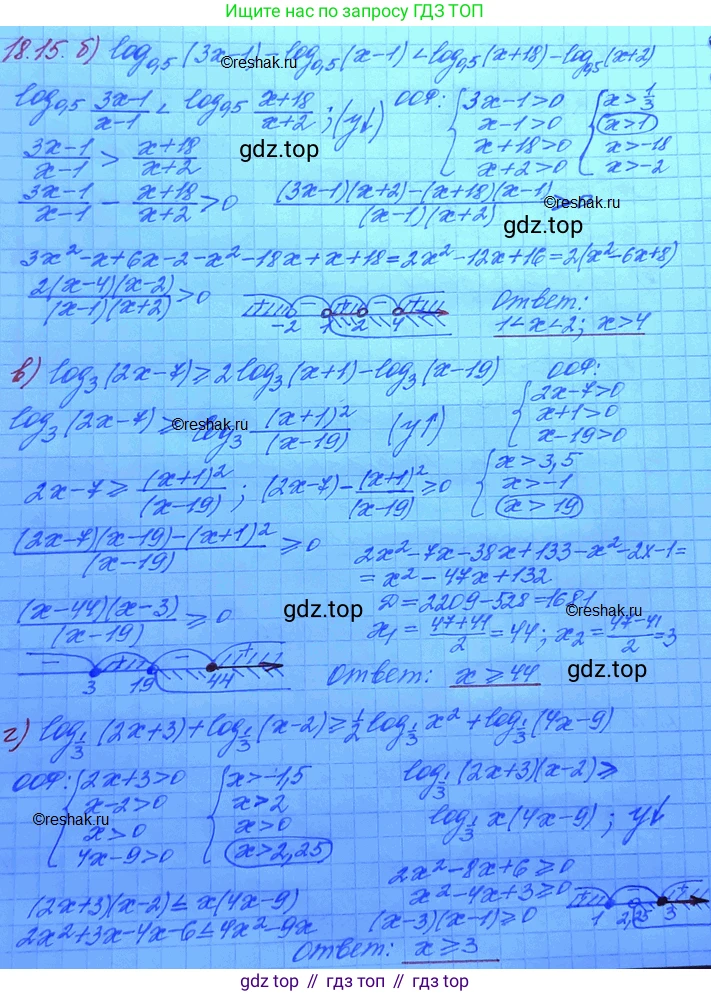 Ищите нас по запросу ГДЗ ТОП
18.15. б) log₀,₅ (3x-1) - log₀,₅ (x-1) < log₀,₅ (x+18) - log₀,₅ (x+2)
©reshak.ru
log₀,₅ (3x-1)/(x-1) < log₀,₅ (x+18)/(x+2) ; (y↓) ООФ: { 3x-1>0 { x>1/3
x-1>0 x>1
(3x-1)/(x-1) > (x+18)/(x+2) x+18>0 x>-18
gdz.top x+2>0 x>-2
(3x-1)/(x-1) - (x+18)/(x+2) > 0 ((3x-1)(x+2)-(x+18)(x-1))/((x-1)(x+2))
©reshak.ru
gdz.top
3x²-x+6x-2-x²-18x+x+18=2x²-12x+16=2(x²-6x+8)
2(x-4)(x-2)/((x-1)(x+2)) > 0 + - + - + Ответ:
-2 1 2 4 1<x<2; x>4
в) log₃ (2x-7) ≥ 2log₃ (x+1) - log₃ (x-19) ООФ:
©reshak.ru { 2x-7>0
log₃ (2x-7) ≥ log₃ (x+1)²/(x-19) (y↑) x+1>0
x-19>0
2x-7 ≥ (x+1)²/(x-19) ; (2x-7) - (x+1)²/(x-19) ≥ 0 { x>3,5
x>-1
x>19
((2x-7)(x-19)-(x+1)²)/(x-19) ≥ 0 2x²-7x-38x+133-x²-2x-1=
= x²-47x+132
(x-44)(x-3)/(x-19) ≥ 0 gdz.top D = 2209-528=1681
©reshak.ru
x₁ = (47+41)/2 = 44; x₂ = (47-41)/2 = 3
- + - +
3 19 44 Ответ: x ≥ 44 gdz.top
г) log₁/₃ (2x+3) + log₁/₃ (x-2) ≥ ½ log₁/₃ x² + log₁/₃ (4x-9)
ООФ: { 2x+3>0 { x>-1,5 log₁/₃ (2x+3)(x-2) ≥
x-2>0 x>2
©reshak.ru
x>0 x>0 log₁/₃ x(4x-9) ; y↓
4x-9>0 x>2,25
2x²-8x+6 ≥ 0
(2x+3)(x-2) ≤ x(4x-9) x²-4x+3 ≥ 0
2x²+3x-4x-6 ≤ 4x²-9x (x-3)(x-1) ≥ 0 1 2,25 3
Ответ: x ≥ 3
gdz top // гдз топ // gdz.top